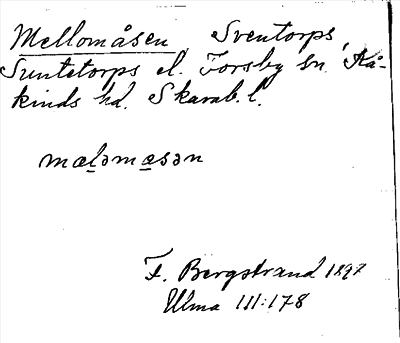 Mellomåsen Sventorps
Suntetorps el. Forsby sn. Kå-
kinds hd. Skarab. l.
mælomæsən
F. Bergstrand 1897
Ulma III:178